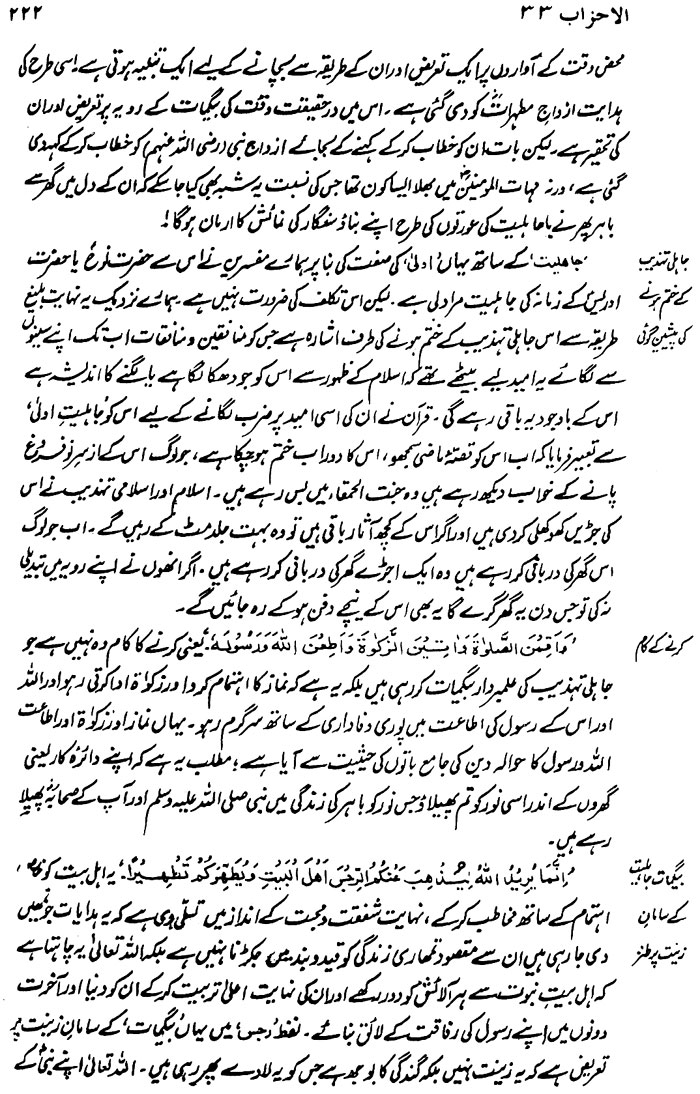 الاحزاب ۳۳
۲۲۲
محض وقت کے آواردوں پر ایک تعریض اور ان کے طریقہ سے بچانے کے لیے ایک تنبیہ ہوتی ہے۔ اسی طرح کی
ہدایت ازواجِ مطہراتؓ کو دی گئی ہے۔ اس میں درحقیقت وقت کی بیگمات کے رویہ پر تعریض اور ان
کی تحقیر ہے۔ لیکن بات ان کو خطاب کر کے کہنے کے بجائے ازواجِ نبی (رضی اللہ عنہم) کو خطاب کر کے کہہ دی
گئی ہے، ورنہ مہات المومنینؓ میں بھلا ایسا کون تھا جس کی نسبت یہ شبہ بھی کیا جا سکے کہ ان کے دل میں گھر سے
باہر پھرنے یا جاہلیت کی عورتوں کی طرح اپنے بناؤ سنگار کی نمائش کا ارمان ہو گا!
جاہلی تہذیب
کے ختم ہونے
کی پیشین گوئی
’جاھلیت‘ کے ساتھ یہاں ’اولیٰ‘ کی صفت کی بنا پر ہمارے مفسرین نے اس سے حضرت نوحؑ یا حضرت
ادریسؑ کے زمانہ کی جاہلیت مراد لی ہے۔ لیکن اس تکلف کی ضرورت نہیں ہے۔ ہمارے نزدیک یہ نہایت بلیغ
طریقہ سے اس جاہلی تہذیب کے ختم ہونے کی طرف اشارہ ہے جس کو منافقین و منافقات اب تک اپنے سینوں
سے لگائے یہ امید لیے بیٹھے تھے کہ اسلام کے ظہور سے اس کو جو دھکا لگا ہے یا لگنے کا اندیشہ ہے
اس کے باوجود یہ باقی رہے گی۔ قرآن نے ان کی اسی امید پر ضرب لگانے کے لیے اس کو ’جاہلیتِ اولیٰ‘
سے تعبیر فرمایا کہ اب اس کو قصۂ ماضی سمجھو، اس کا دور اب ختم ہو چکا ہے، جو لوگ اس کے ازسرِنو فروغ
پانے کے خواب دیکھ رہے ہیں وہ جنت الحمقاء میں بس رہے ہیں۔ اسلام اور اسلامی تہذیب نے اس
کی جڑیں کھوکھلی کر دی ہیں اور اگر اس کے کچھ آثار باقی ہیں تو وہ بہت جلد مٹ کے رہیں گے۔ اب جو لوگ
اس گھر کی دربانی کر رہے ہیں وہ ایک اجڑے گھر کی دربانی کر رہے ہیں۔ اگر انھوں نے اپنے رویہ میں تبدیلی
نہ کی تو جس دن یہ گھر گرے گا یہ بھی اس کے نیچے دفن ہو کے رہ جائیں گے۔
کرنے کے کام
’وَاَقِمْنَ الصَّلٰوۃَ وَاٰتِیْنَ الزَّکٰوۃَ وَاَطِعْنَ اللہَ وَرَسُوْلَہٗ‘۔ یعنی کرنے کا کام وہ نہیں ہے جو
جاہلی تہذیب کی علمبردار بیگمات کر رہی ہیں بلکہ یہ ہے کہ نماز کا اہتمام کرو اور زکوٰۃ ادا کرتی رہو اور اللہ
اور اس کے رسول کی اطاعت میں پوری وفاداری کے ساتھ سرگرم رہو۔ یہاں نماز اور زکوٰۃ اور اطاعت
اللہ و رسول کا حوالہ دین کی جامع باتوں کی حیثیت سے آیا ہے؛ مطلب یہ ہے کہ اپنے دائرۂ کار یعنی
گھروں کے اندر اسی نور کو تم پھیلاؤ جس نور کو باہر کی زندگی میں نبی صلی اللہ علیہ وسلم اور آپ کے صحابہؓ پھیلا
رہے ہیں۔
بیگمات جاہلیت
کے سامانِ
زینت پر طنز
’اِنَّمَا یُرِیْدُ اللہُ لِیُذْھِبَ عَنْکُمُ الرِّجْسَ اَھْلَ الْبَیْتِ وَیُطَھِّرَکُمْ تَطْھِیْرًا‘۔ یہ اہلِ بیت کو خاص
اہتمام کے ساتھ مخاطب کر کے، نہایت شفقت و محبت کے انداز میں تسلی دی ہے کہ یہ ہدایات جو تمھیں
دی جا رہی ہیں ان سے مقصود تمھاری زندگی کو قید و بند میں جکڑنا نہیں ہے بلکہ اللہ تعالیٰ یہ چاہتا ہے
کہ اہلِ بیتِ نبوت سے ہر آلائش کو دور رکھے اور ان کی نہایت اعلیٰ تربیت کر کے ان کو دنیا اور آخرت
دونوں میں اپنے رسول کی رفاقت کے لائق بنائے۔ لفظ ’رجس‘ میں یہاں ’بیگمات‘ کے سامانِ زینت پر
تعریض ہے کہ یہ زینت نہیں بلکہ گندگی کا بوجھ ہے جس کو یہ لادے پھر رہی ہیں۔ اللہ تعالیٰ اپنے نبیؐ کے